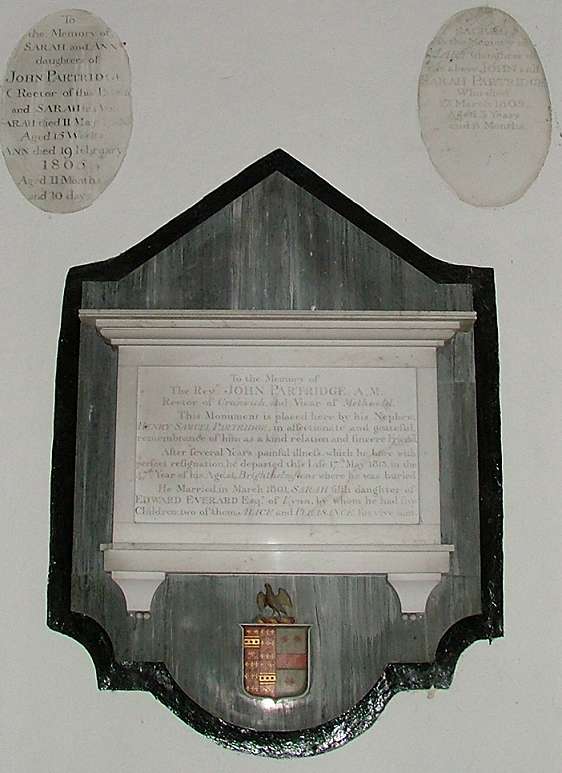 To
the Memory of
SARAH and ANN
daughters of
JOHN PARTRIDGE
Rector of this
and SARAH his
SARAH died 11 May
Aged 15 Weeks
ANN died 19 February
1805
Aged 11 Months
and 10 days
SACRED
to the Memory of
daughter of
the above JOHN and
SARAH PARTRIDGE
Who died
March 1809
Aged 3 Years
and 8 Months
To the Memory of
The Revd. JOHN PARTRIDGE, A.M.
Rector of Cranwich, and Vicar of Methwold,
This Monument is placed here by his Nephew
HENRY SAMUEL PARTRIDGE, in affectionate and grateful
remembrance of him as a kind relation and sincere friend.
After several Years painful illness, which he bore with
perfect resignation, he departed this Life 17th May 1813, in the
Year of his Age, at Brighthelmstone where he was buried
He Married in March 1801, SARAH fifth daughter of
EDWARD EVERARD Esqr. of Lynn, by whom he had five
Children; two of them, ALICE and PLEASANCE, survive him